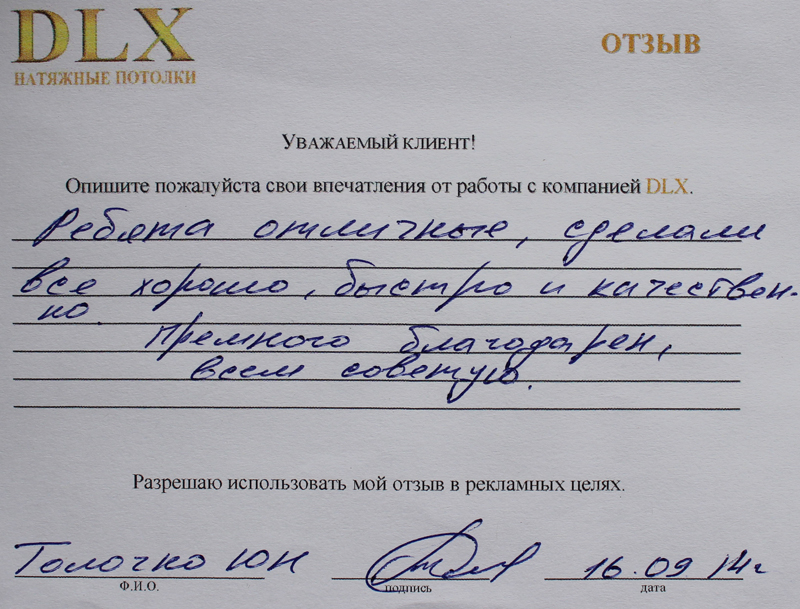 DLX
НАТЯЖНЫЕ ПОТОЛКИ
ОТЗЫВ
УВАЖАЕМЫЙ КЛИЕНТ!
Опишите пожалуйста свои впечатления от работы с компанией DLX.
Ребята отличные, сделали
все хорошо, быстро и качествен-
но.
Премного благодарен,
всем советую.
Разрешаю использовать мой отзыв в рекламных целях.
Толочко ЮН 16.09 14г
Ф.И.О. подпись дата